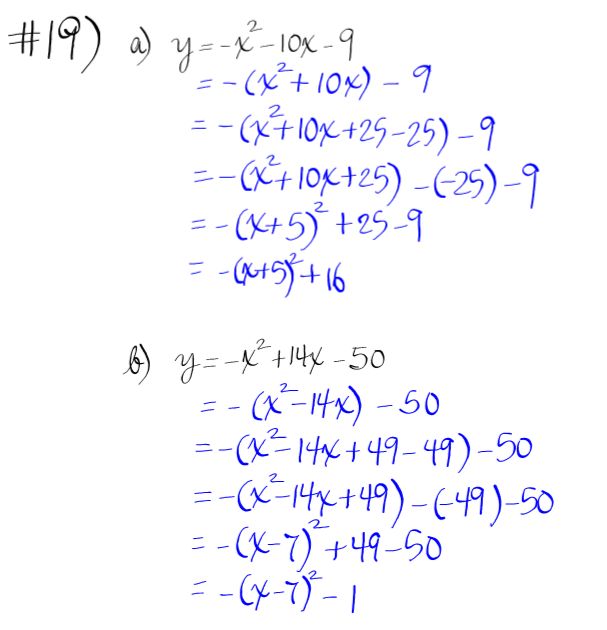 #19) a) y = -x² - 10x - 9
= -(x² + 10x) - 9
= -(x² + 10x + 25 - 25) - 9
= -(x² + 10x + 25) - (-25) - 9
= -(x + 5)² + 25 - 9
= -(x + 5)² + 16
b) y = -x² + 14x - 50
= -(x² - 14x) - 50
= -(x² - 14x + 49 - 49) - 50
= -(x² - 14x + 49) - (-49) - 50
= -(x - 7)² + 49 - 50
= -(x - 7)² - 1